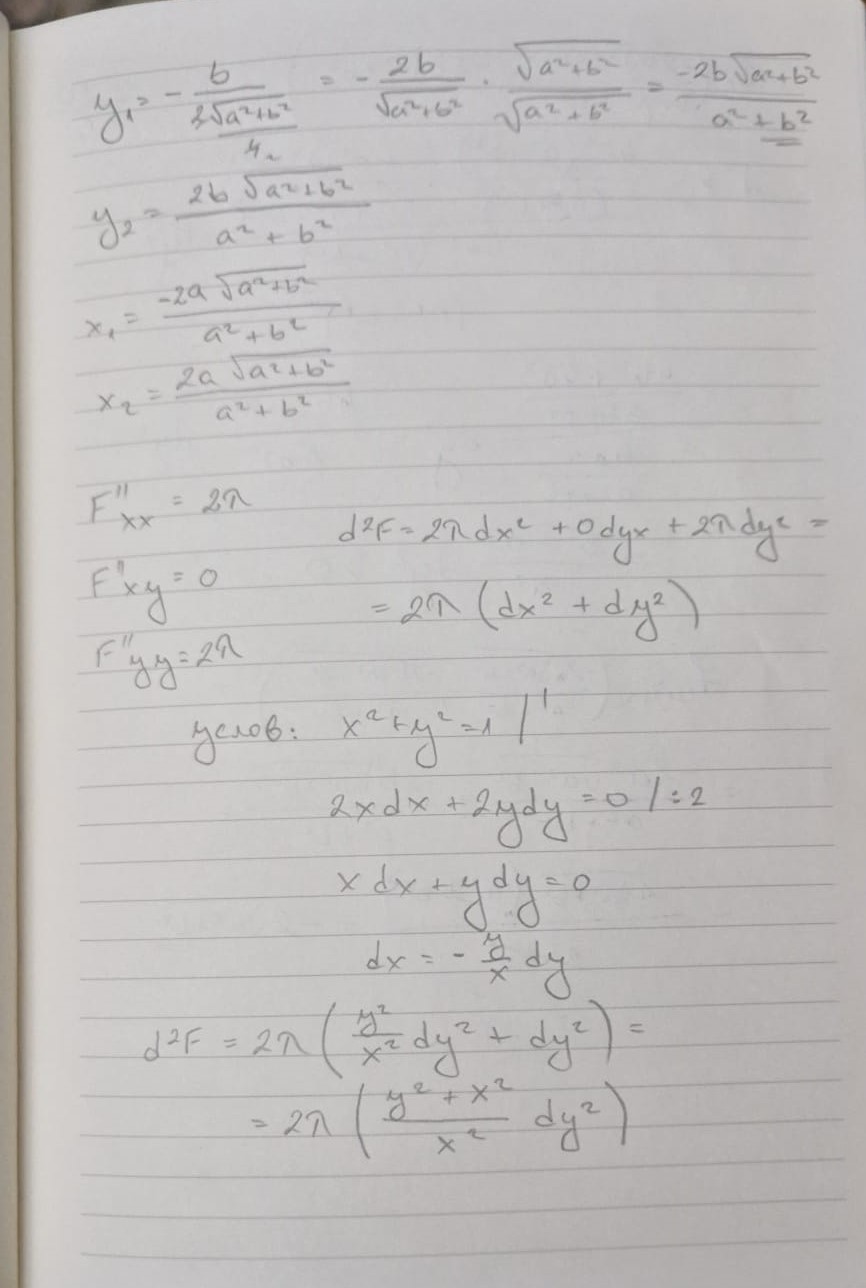 y₁ = - b / (2√(a²+b²) / 4) = - 2b / √(a²+b²) · √(a²+b²) / √(a²+b²) = -2b√(a²+b²) / (a²+b²)
y₂ = 2b√(a²+b²) / (a²+b²)
x₁ = -2a√(a²+b²) / (a²+b²)
x₂ = 2a√(a²+b²) / (a²+b²)
F''xx = 2λ
d²F = 2λdx² + 0dyx + 2λdy² =
F''xy = 0
= 2λ (dx² + dy²)
F''yy = 2λ
услов: x² + y² = 1 /'
2xdx + 2ydy = 0 / :2
x dx + y dy = 0
dx = - y/x dy
d²F = 2λ (y²/x² dy² + dy²) =
= 2λ ((y² + x²)/x² dy²)